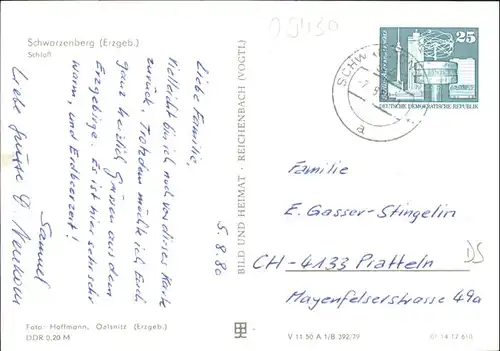 Schwarzenberg (Erzgeb.)
Schloß
Liebe Familie,
Vielleicht bin ich noch vor dieser Karte
zurück. Trotzdem möchte ich Euch
ganz herzlich Grüssen aus dem
Erzgebirge. Es ist hier sehr sehr
warm, und Erdbeerzeit!
Liebe Grüsse
Samuel
5.8.80
Foto: Hoffmann, Oelsnitz (Erzgeb.)
DDR 0,20 M
BILD UND HEIMAT · REICHENBACH (VOGTL)
25
DEUTSCHE DEMOKRATISCHE REPUBLIK
SCHW
a
Familie
E. Gasser-Stingelin
CH-4133 Pratteln
Mayenfelserstrasse 49a
DS
V 11 50 A 1/B 392/79
01 14 17 610